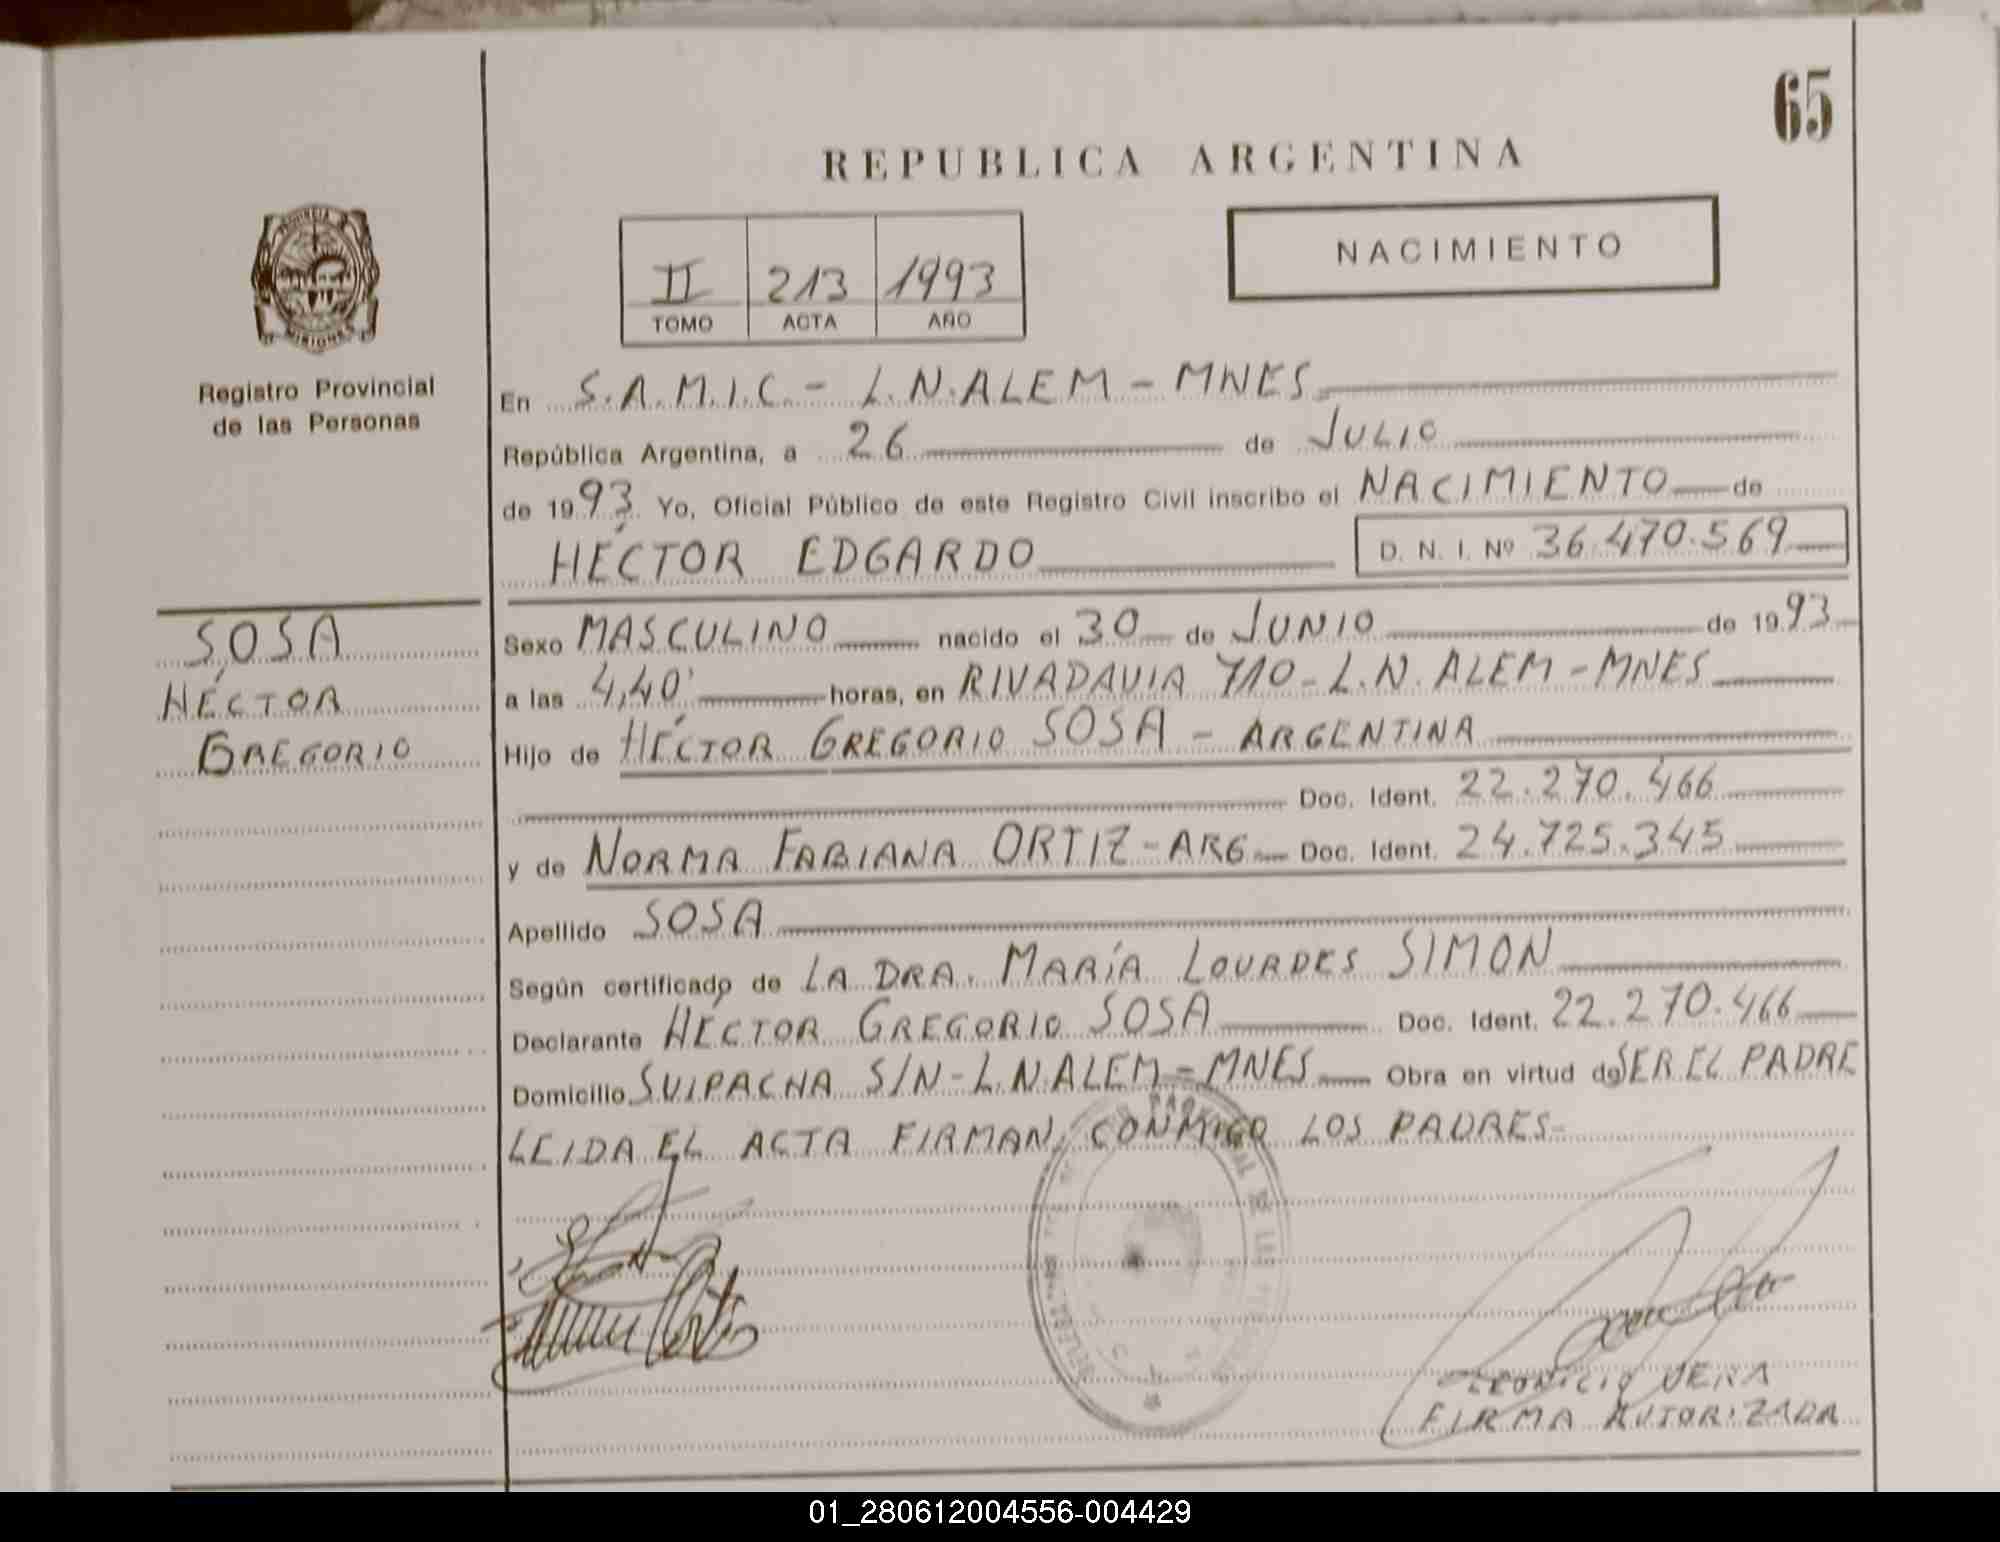 65
REPUBLICA ARGENTINA
NACIMIENTO
II 213 1993
TOMO ACTA AÑO
PROVINCIA DE MISIONES
Registro Provincial
de las Personas
SOSA
HÉCTOR
GREGORIO
En S.A.M.I.C. - L.N. ALEM - MNES
República Argentina, a 26 de JULIO
de 1993 Yo, Oficial Público de este Registro Civil inscribo el NACIMIENTO de
HÉCTOR EDGARDO D. N. I. Nº 36.470.569
Sexo MASCULINO nacido el 30 de JUNIO de 1993
a las 4,40' horas, en RIVADAVIA 710 - L.N. ALEM - MNES
Hijo de HÉCTOR GREGORIO SOSA - ARGENTINA
Doc. Ident. 22.270.466
y de NORMA FABIANA ORTIZ - ARG Doc. Ident. 24.725.345
Apellido SOSA
Según certificado de LA DRA. MARÍA LOURDES SIMON
Declarante HÉCTOR GREGORIO SOSA Doc. Ident. 22.270.466
Domicilio SUIPACHA S/N - L.N ALEM - MNES Obra en virtud de SER EL PADRE
LEIDA EL ACTA FIRMAN CONMIGO LOS PADRES-
LEONICIO VERA
FIRMA AUTORIZADA
01_280612004556-004429